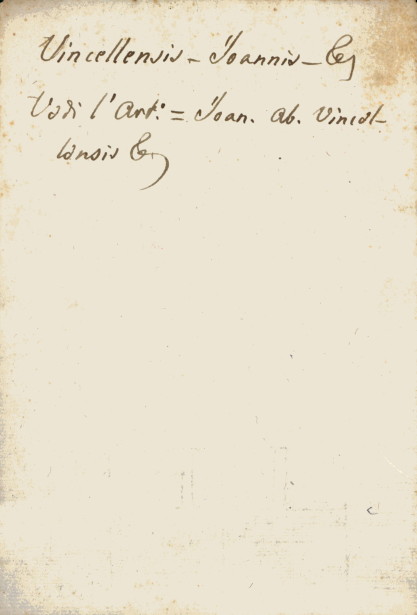 Vincellensis - Joannis - &c
Vedi l' Art.º = Joan. Ab. Vincel-
lensis &c